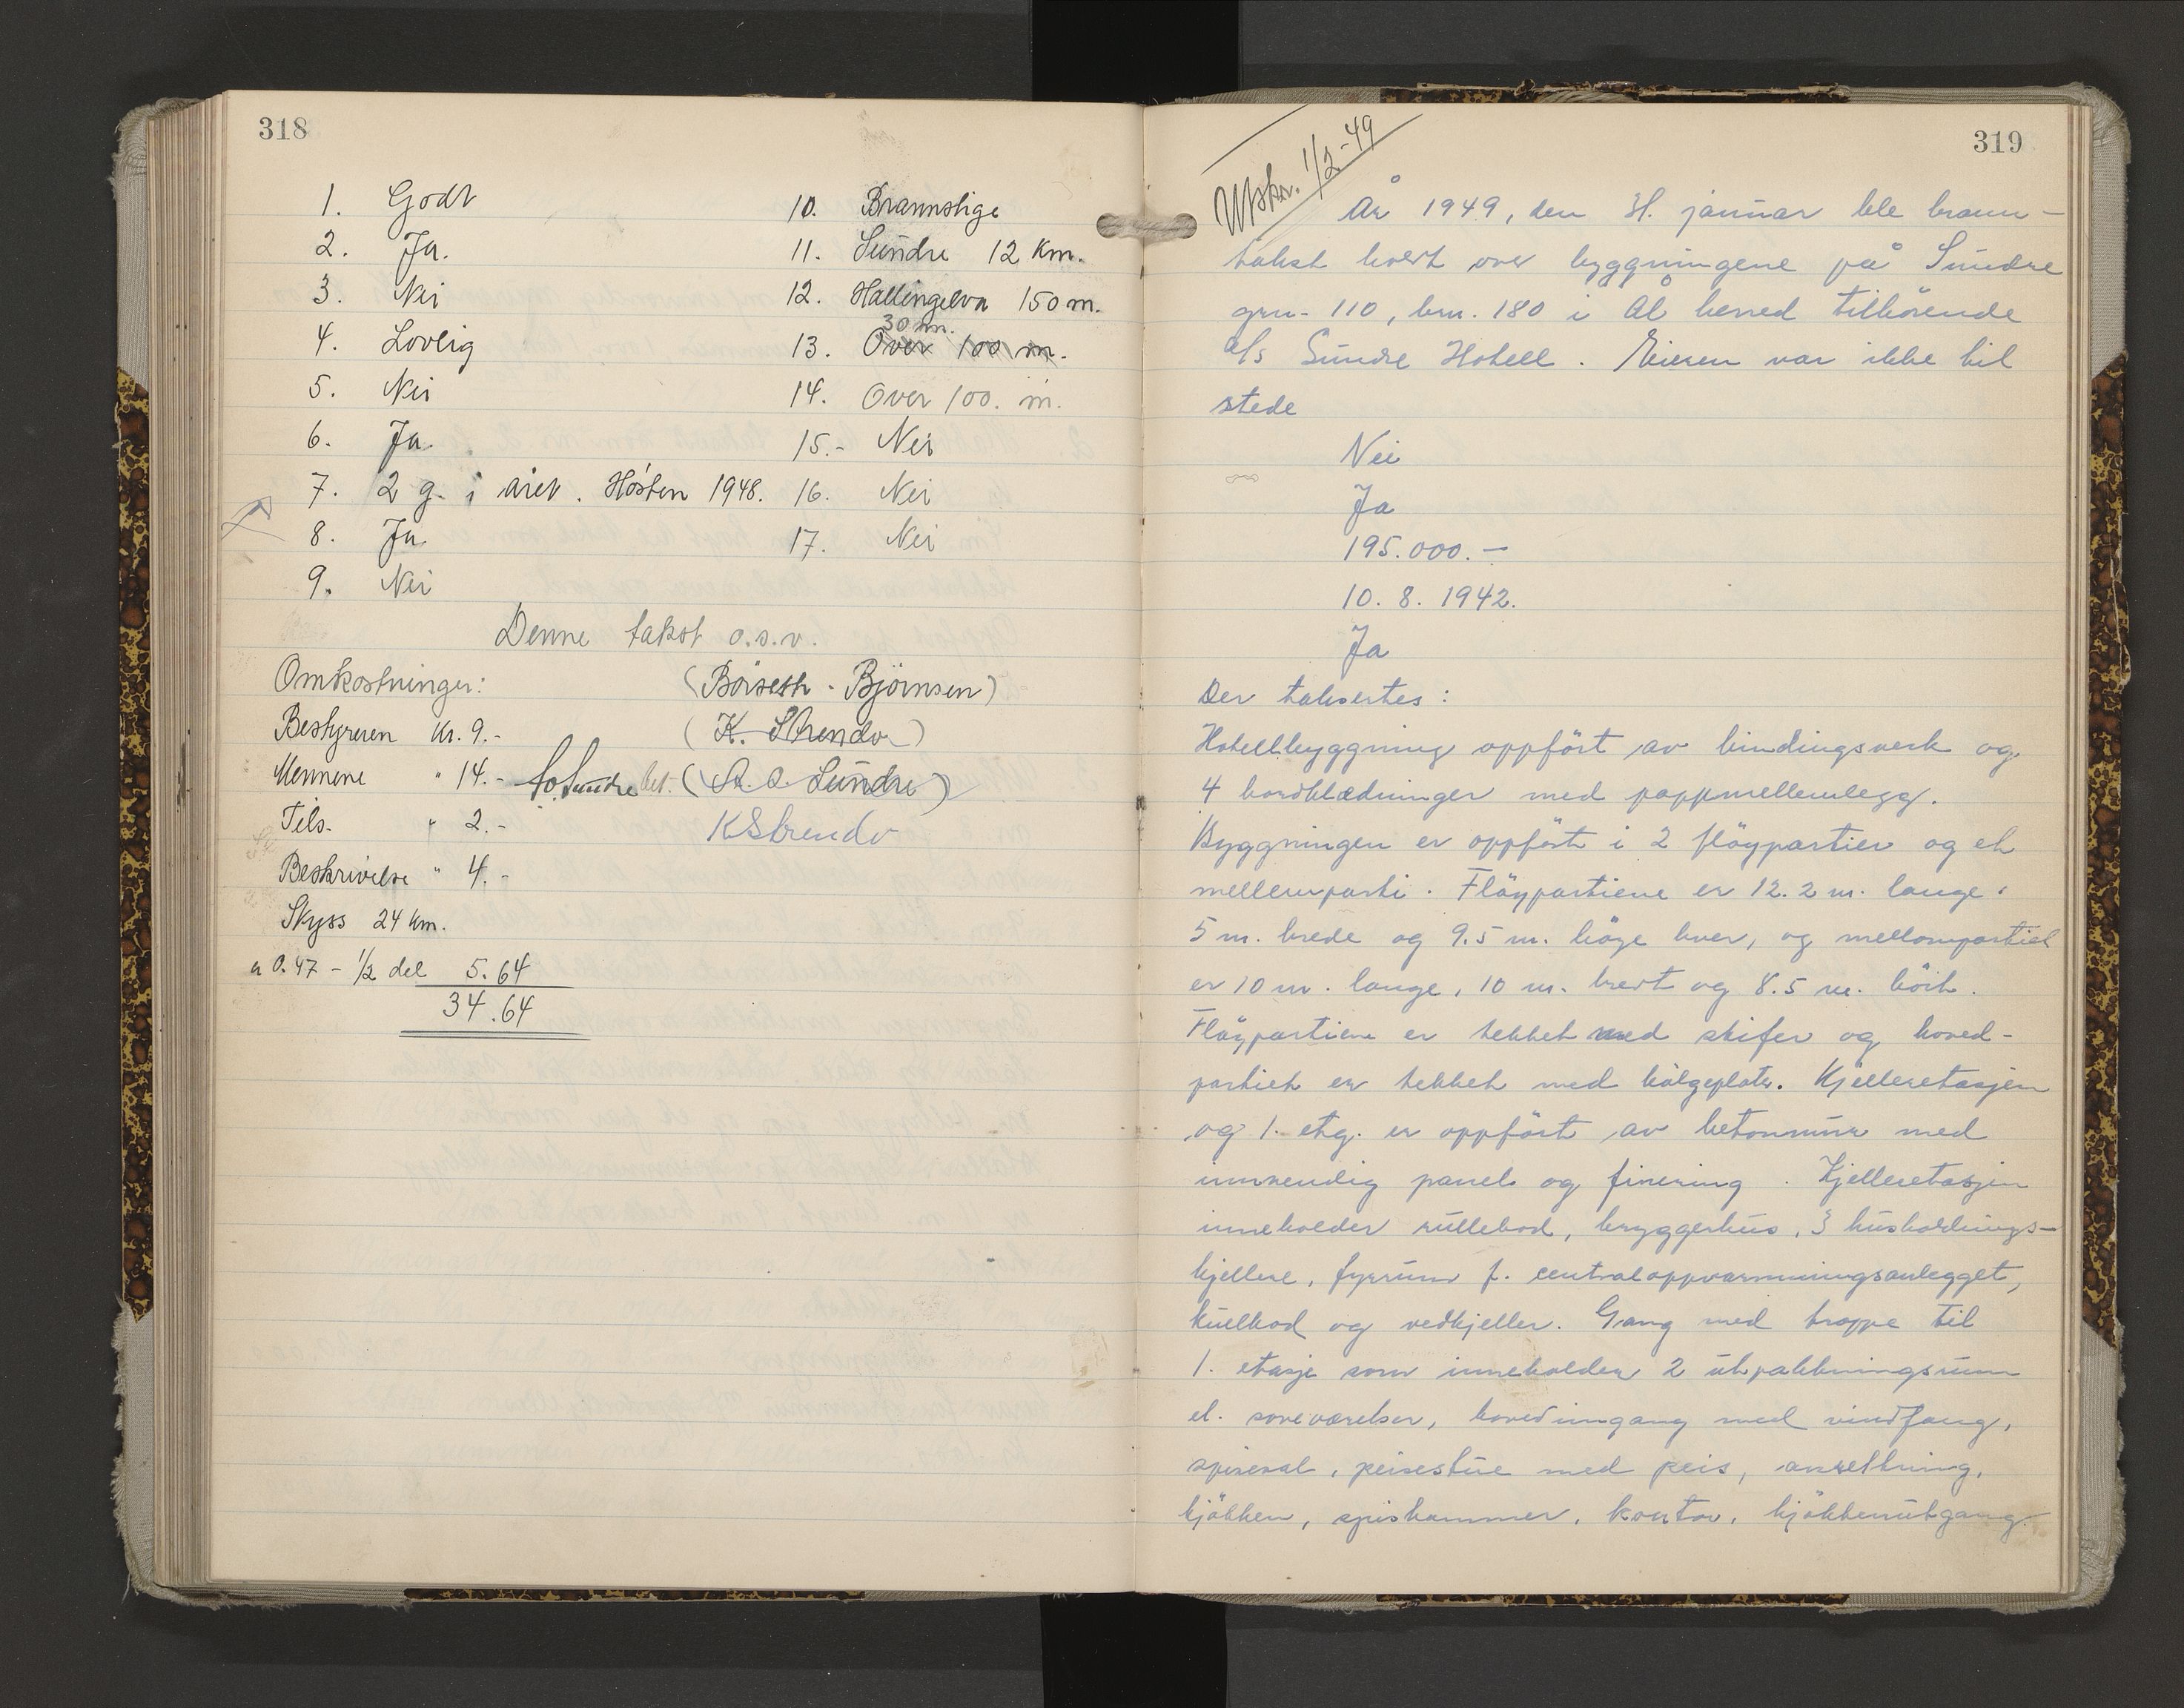 318
1. Godt
2. Ja.
3. Nei
4. Lovlig
5. Nei
6. Ja.
7. 2 g. i året. Høsten 1948.
8. Ja
9. Nei
10. Brannstige
11. Sundre 12 km.
12. Hallingelva 150 m.
30 m.
13. Over 100 m.
14. Over 100. m.
15.- Nei
16. Nei
17. Nei
Denne takst o.s.v.
Omkostninger:
(Börseth - Björnsen)
Bestyreren kr. 9.-
(K. Strendo)
Mennene " 14.-
(A. O. Sundre)
Tils. " 2.-
K Strendo
Beskrivelse " 4.-
Skyss 24 km.
a 0.47 - 1/2 del 5.64
34.64
319
Utskr. 1/2-49
År 1949, den 31. januar ble brann-
takst holdt over byggningene på Sundre
gnr. 110, bnr. 180 i Ål herred tilhörende
a/s Sundre Hotell. Eieren var ikke til
stede
Nei
Ja
195.000.-
10. 8. 1942.
Ja
Der taksertes:
Hotellbyggning oppfört av bindingsverk og
4 bordklædninger med pappmellemlegg.
Byggningen er oppfört i 2 flöypartier og et
mellemparti. Flöypartiene er 12.2 m. lange,
5 m. brede og 9.5 m. höye hver, og mellompartiet
er 10 m. lange, 10 m. bredt og 8.5 m. höit.
Flöypartiene er tekket med skifer og hoved-
partiet er tekket med bölgeplater. Kjelleretasjen
og 1. etg. er oppfört av betonmur med
innvendig panel og finering. Kjelleretasjen
inneholder rullebod, bryggerhus, 3 husholdnings-
kjellere, fyrrum f. centraloppvarmningsanlegget,
kullbod og vedkjeller. Gang med trappe til
1. etasje som inneholder 2 utpakkningsrum
el. soveværelser, hovedinngang med vindfang,
spisesal, peisestue med peis, anrettning,
kjökken, spiskammer, kontor, kjökkenutgang